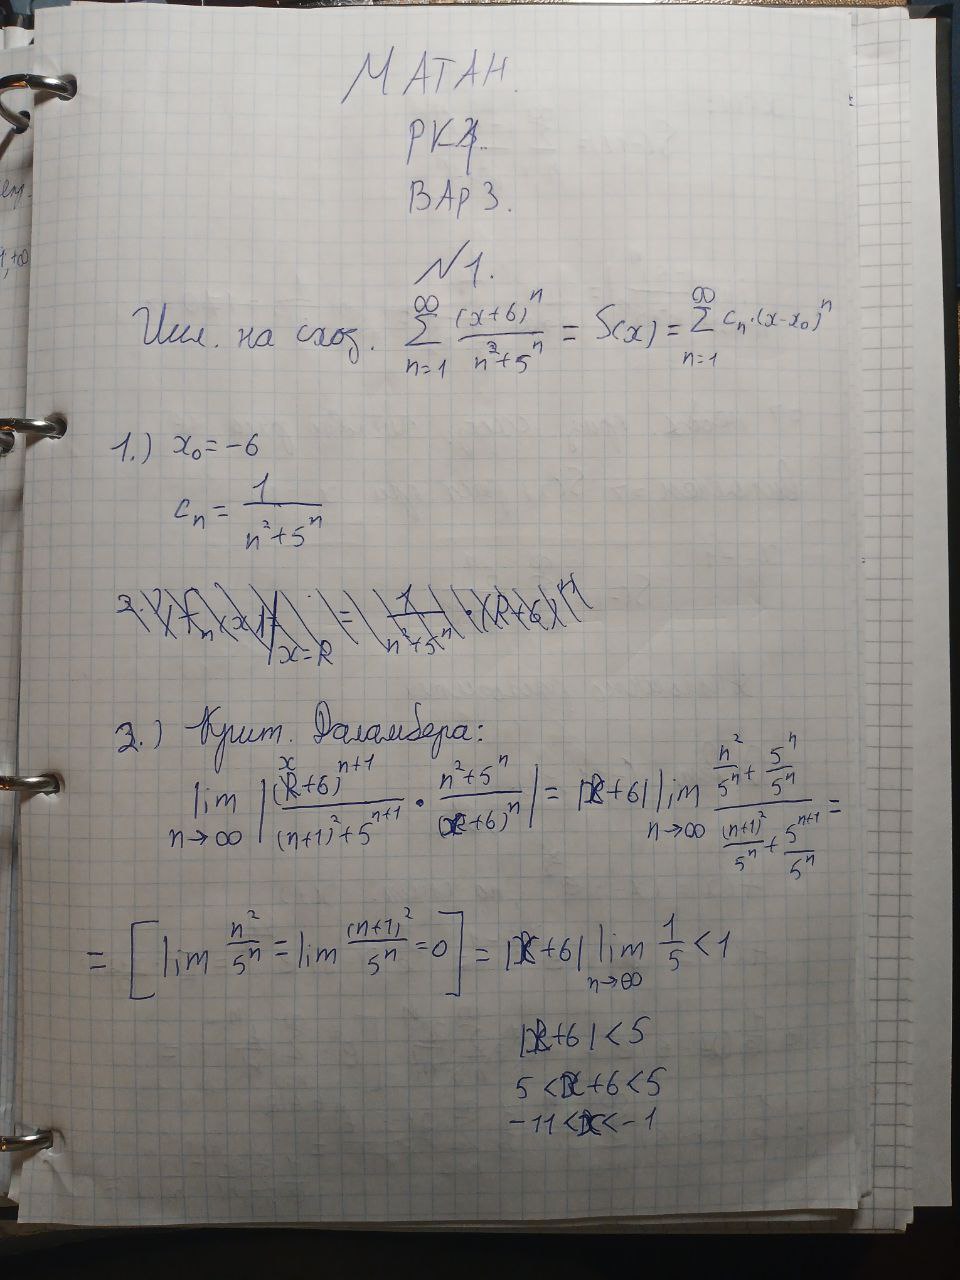 МАТАН.
РК4.
ВАР 3.
№1.
Иссл. на сход. ∑_{n=1}^{∞} (x+6)^n / (n^2+5^n) = S(x) = ∑_{n=1}^{∞} c_n·(x-x_0)^n
1.) x_0 = -6
c_n = 1 / (n^2+5^n)
2.) Крит. Даламбера:
lim_{n→∞} |(x+6)^{n+1} / ((n+1)^2+5^{n+1}) · (n^2+5^n) / (x+6)^n| = |x+6| lim_{n→∞} (n^2/5^n + 5^n/5^n) / ((n+1)^2/5^n + 5^{n+1}/5^n) =
= [lim n^2/5^n = lim (n+1)^2/5^n = 0] = |x+6| lim_{n→∞} 1/5 < 1
|x+6| < 5
5 < x+6 < 5
-11 < x < -1